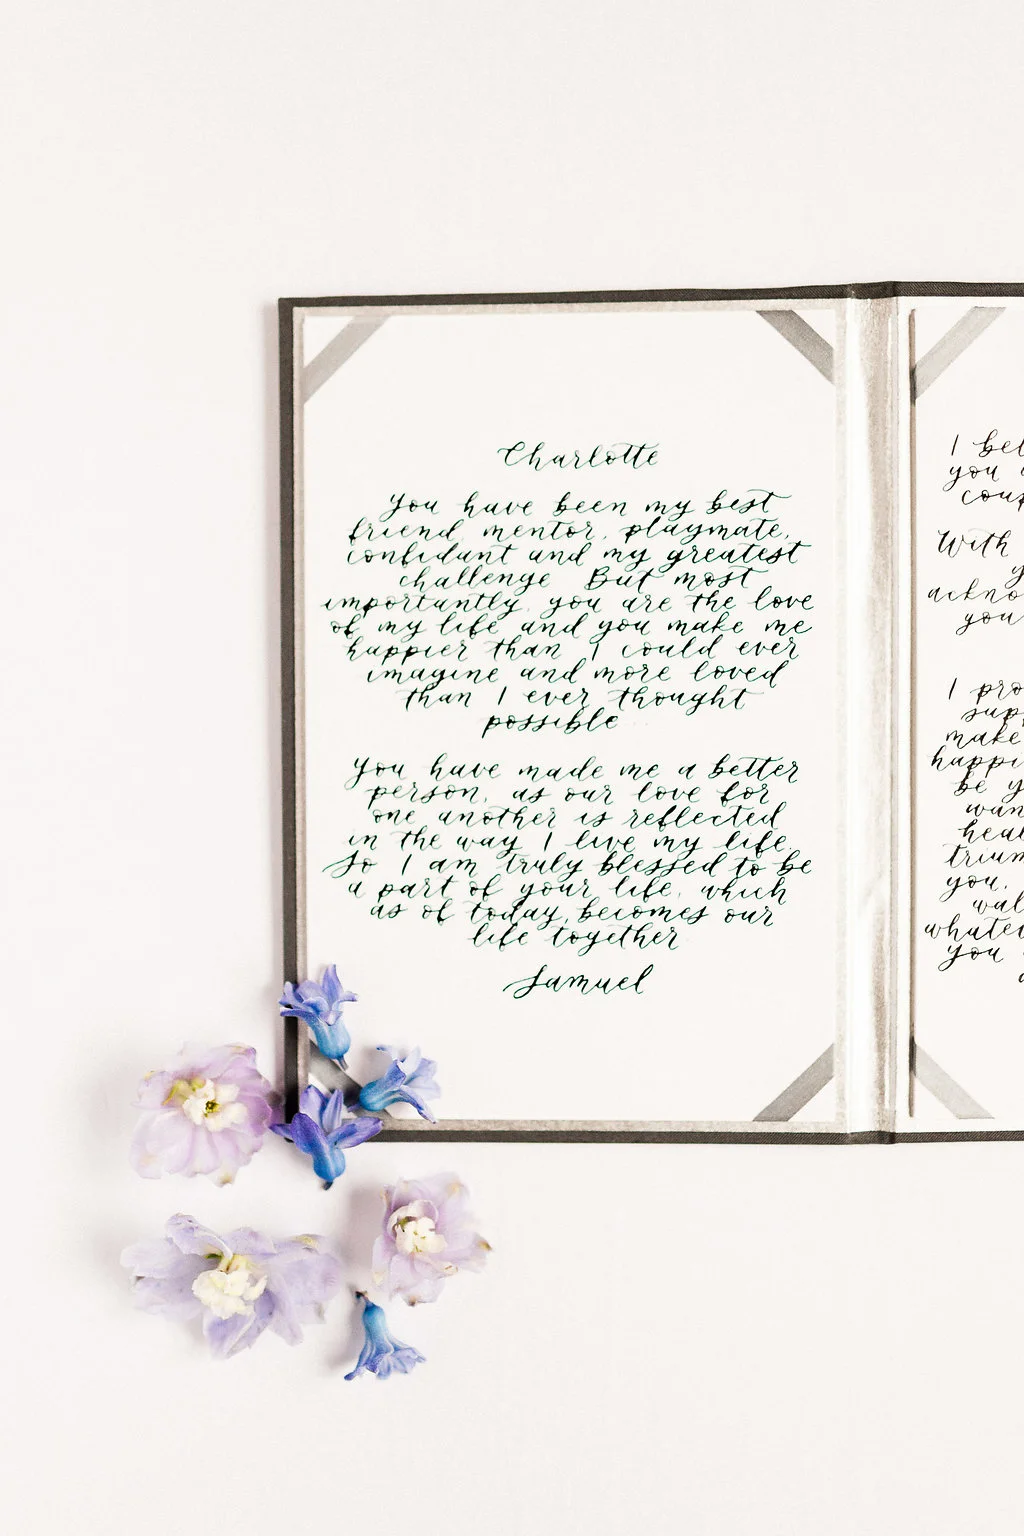 Charlotte
You have been my best
friend, mentor, playmate,
confidant and my greatest
challenge But most
importantly, you are the love
of my life and you make me
happier than I could ever
imagine and more loved
than I ever thought
possible
You have made me a better
person, as our love for
one another is reflected
in the way I live my life.
So I am truly blessed to be
a part of your life, which
as of today, becomes our
life together
Samuel
I
you
With
you
I
make
be
you.
you